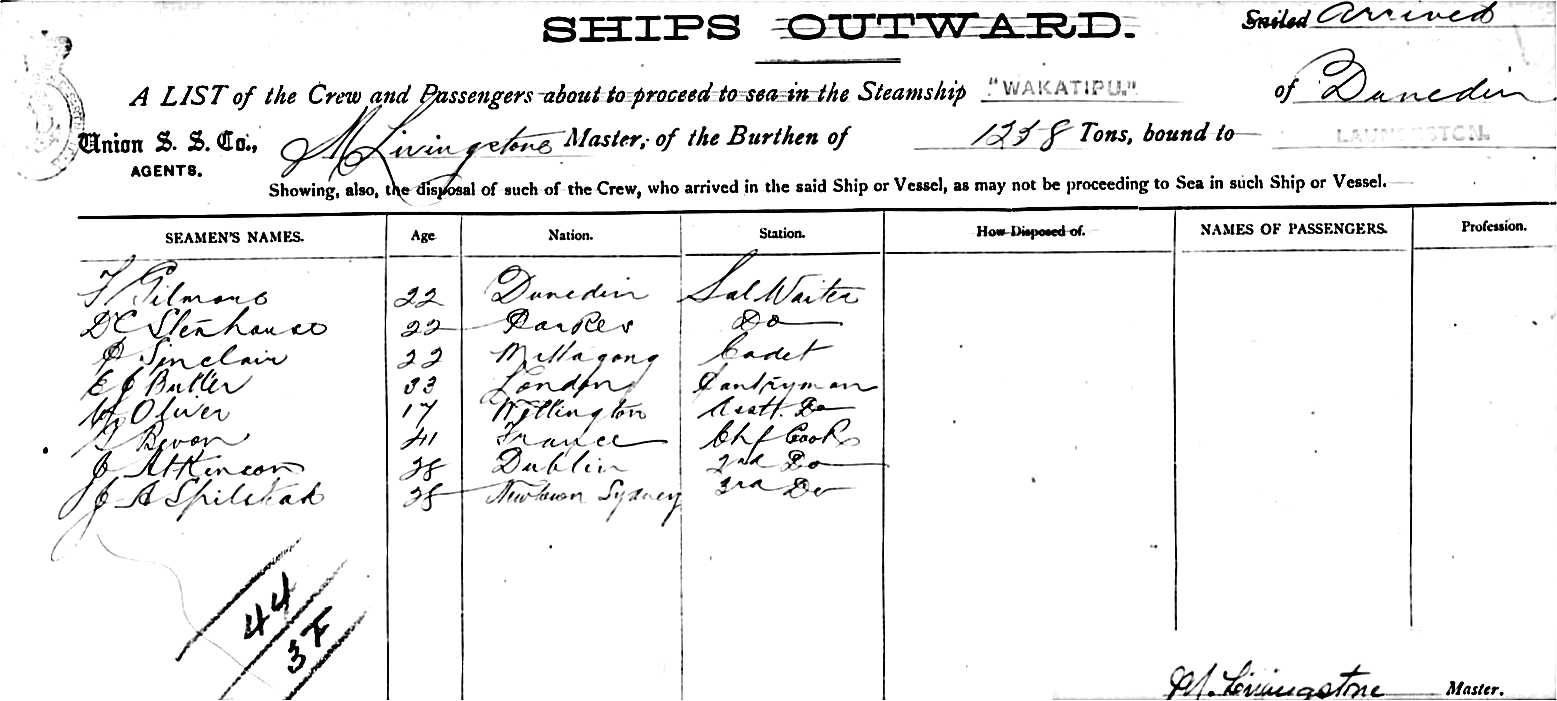 SHIPS OUTWARD. Sailed Arrived
A LIST of the Crew and Passengers about to proceed to sea in the Steamship "WAKATIPU." of Dunedin
Union S. S. Co., M Livingstone Master, of the Burthen of 1258 Tons, bound to LAUNCESTON.
AGENTS.
Showing, also, the disposal of such of the Crew, who arrived in the said Ship or Vessel, as may not be proceeding to Sea in such Ship or Vessel.
SEAMEN'S NAMES. Age Nation. Station. How Disposed of. NAMES OF PASSENGERS. Profession.
F Gilmour 22 Dunedin Sal Waiter
DC Stenhouse 22 Parkes Do
P Sinclair 22 Mittagong Cadet
E J Butler 33 London Pantryman
Oliver 17 Wellington Asstt. Do
Bevon 41 France Chf Cook
J Atkinson 28 Dublin 2nd Do
J A Spilstead 28 Newtown Sydney 3rd Do
44
3F
M. Livingstone Master.